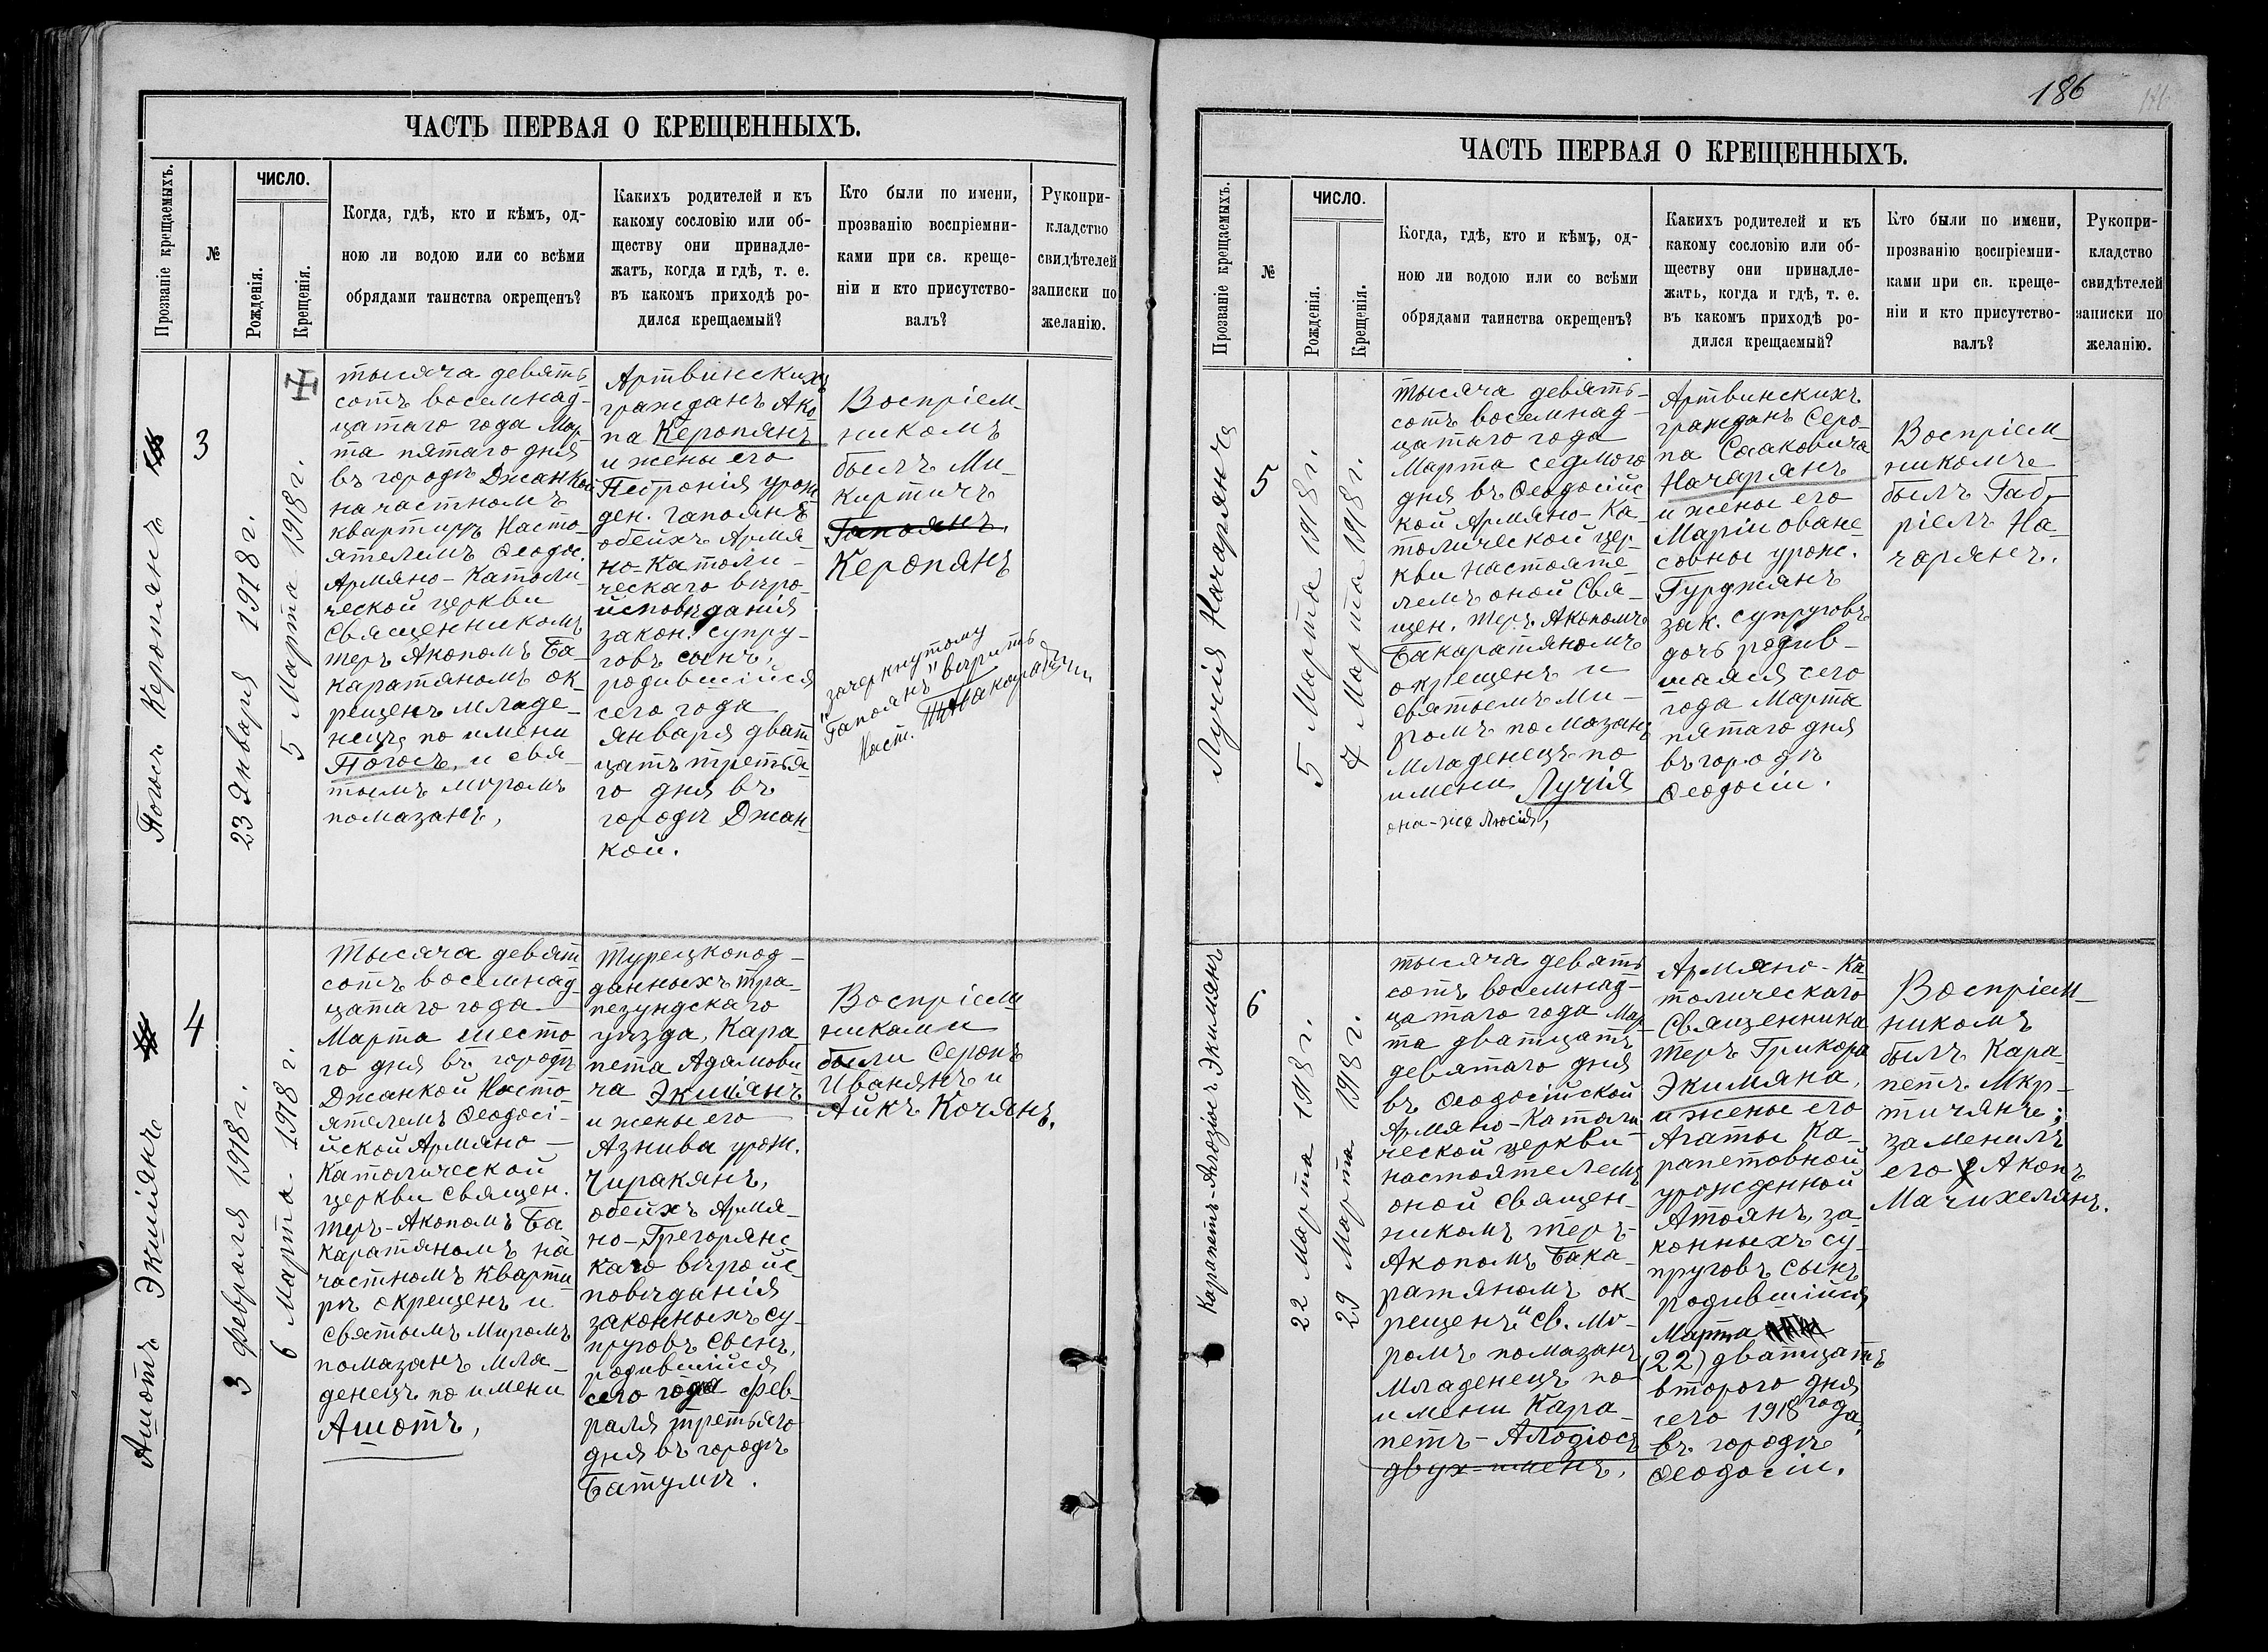 ЧАСТЬ ПЕРВАЯ О КРЕЩЕННЫХЪ.
Прозваніе крещаемыхъ.
№
ЧИСЛО.
Рожденія.
Крещенія.
Когда, гдѣ, кто и кѣмъ, од-
ною ли водою или со всѣми
обрядами таинства окрещенъ?
Какихъ родителей и къ
какому сословію или об-
ществу они принадле-
жатъ, когда и гдѣ, т. е.
въ какомъ приходѣ ро-
дился крещаемый?
Кто были по имени,
прозванію воспріемни-
ками при св. креще-
ніи и кто присутство-
валъ?
Рукопри-
кладство
свидѣтелей
записки по
желанію.
Погосъ Керопянъ
3
23 Января 1918 г.
5 Марта 1918 г.
тысяча девять
сотъ восемнад-
цатаго года Мар
та пятаго дня
въ городѣ Джанкой
на частномъ
квартирѣ Насто
ятелемъ Ѳеодос.
Армяно-Католи-
ческой церкви
Священникомъ
теръ Акопомъ Ба-
каратяномъ ок-
рещенъ младе-
нецъ по имени
Погосъ, и свя-
тымъ миромъ
помазанъ,
Артвинскихъ
гражданъ Ако
па Керопянъ
и жены его
Петронія урож
ден. Гапоянъ
обеихъ Армя-
но-Католи-
ческаго вѣро-
исповѣданія
закон. супру-
говъ сынъ,
родившійся
сего года
января дват
цать третья-
го дня въ
городѣ Джан-
кой.
Воспріем-
никомъ
былъ Ми-
киртичъ
Гапоянъ
Керопянъ
"зачеркнутому
Гапоянъ" вѣрить
Наст.
Ашотъ Экшіянъ
4
3 февраля 1918 г.
6 Марта 1918 г.
Тысяча девят
сотъ восемнад-
цатаго года
Марта шесто
го дня въ городѣ
Джанкой Насто-
ятелемъ Ѳеодосі-
йской Армяно-
Католической
церкви священ.
теръ-Акопомъ Ба
каратяномъ на
частномъ кварти
рѣ окрещенъ и
святымъ Миромъ
помазанъ мла-
денецъ по имени
Ашотъ,
Турецкопод-
данныхъ тра-
пезундскаго
уѣзда, Кара
пета Адамови
ча Экшіянъ
и жены его
Азнива урож.
Чиракянъ,
обеихъ Армя-
но-Грегорянс
каго вѣроис-
повѣданія
законныхъ су-
пруговъ сынъ,
родившійся
сего года фев-
раля третьяго
дня въ городѣ
Батумѣ.
Воспріем
никами
были Серопъ
Иванянъ и
Айкъ Кочянъ.
186
ЧАСТЬ ПЕРВАЯ О КРЕЩЕННЫХЪ.
Прозваніе крещаемыхъ.
№
ЧИСЛО.
Рожденія.
Крещенія.
Когда, гдѣ, кто и кѣмъ, од-
ною ли водою или со всѣми
обрядами таинства окрещенъ?
Какихъ родителей и къ
какому сословію или об-
ществу они принадле-
жатъ, когда и гдѣ, т. е.
въ какомъ приходѣ ро-
дился крещаемый?
Кто были по имени,
прозванію воспріемни-
ками при св. креще-
ніи и кто присутство-
валъ?
Рукопри-
кладство
свидѣтелей
записки по
желанію.
Лучія Начарянъ
5
5 Марта 1918 г.
7 Марта 1918 г.
тысяча девять-
сотъ восемнад-
цатаго года
Марта седмого
дня въ Ѳеодосійс
кой Армяно-Ка-
толической цер-
кви настояте-
лемъ оной Свя-
щен. теръ. Акопомъ
Бакаратяномъ
окрещенъ и
святымъ Ми-
ромъ помазанъ
младенецъ по
имени Лучія
она-же Люсія,
Артвинскихъ
гражданъ Серо-
па Сааковича
Начарянъ
и жены его
Маріи ованe
совны урож.
Гурджянъ
зак. супруговъ
дочь родив-
шаяся сего
года Марта
пятаго дня
въ городѣ
Ѳеодосіи.
Воспріем
никомъ
былъ Габ-
ріелъ На-
чарянъ.
Карапетъ-Алозіосъ Экимянъ
6
22 Марта 1918 г.
29 Марта 1918 г.
тысяча девять
сотъ восемнад-
цатаго года Мар
та дватцать
девятаго дня
въ Ѳеодосійской
Армяно-Католи
ческой церкви
настоятелемъ
оной Священ-
никомъ теръ-
Акопомъ Бака-
ратяномъ ок-
рещенъ и св. Ми-
ромъ помазанъ
младенецъ по
имени Кара-
петъ-Алозіосъ
двух-именъ,
Армяно-Ка-
толическаго
Священника
теръ Грикора
Экимяна,
и жены его
Агаты Ка-
рапетовной
урожденной
Атоянъ, за-
конныхъ су-
пруговъ сынъ
родившійся
Марта
(22) дватцать
второго дня
сего 1918 года,
въ городѣ
Ѳеодосіи.
Воспріем-
никомъ
былъ Кара-
петъ Мкр-
тичянъ;
заменилъ
его Акопъ
Мачихелянъ.